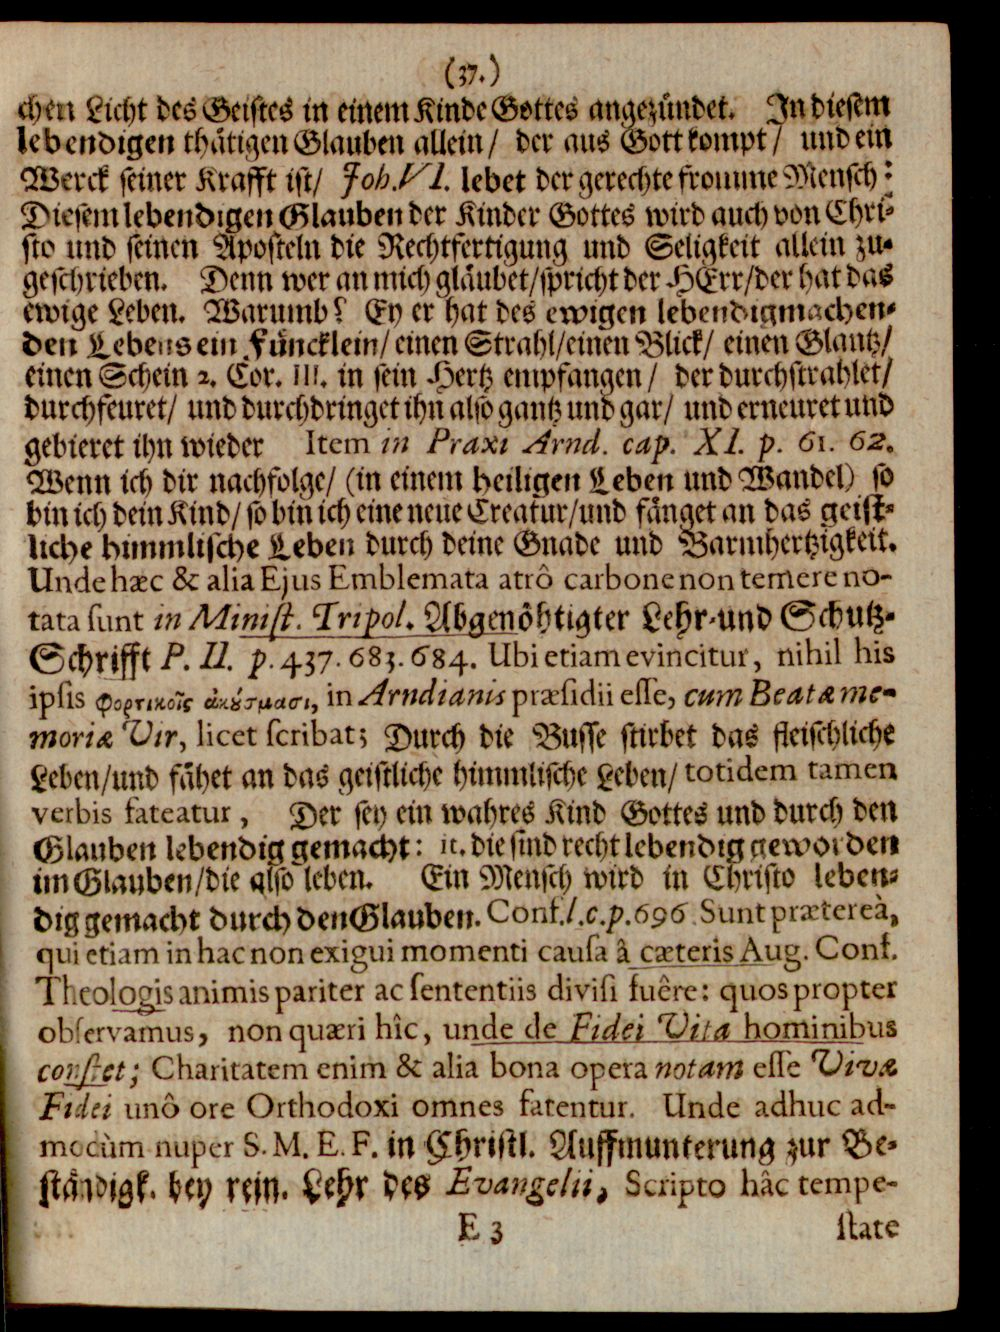 (37.)
chen Licht des Geistes in einem Kinde Gottes angezündet. In diesem
lebendigen thätigen Glauben allein / der aus Gott kompt / und ein
Werck seiner Krafft ist / Joh. VI. lebet der gerechte fromme Mensch:
Diesem lebendigen Glauben der Kinder Gottes wird auch von Chri-
sto und seinen Aposteln die Rechtfertigung und Seligkeit allein zu-
geschrieben. Denn wer an mich gläubet / spricht der HErr / der hat das
ewige Leben. Warumb? Ey er hat des ewigen lebendigmachen-
den Lebens ein Füncklein / einen Strahl / einen Blick / einen Glantz /
einen Schein 2. Cor. III. in sein Hertz empfangen / der durchstrahlet /
durchfeuret / und durchdringet ihn also gantz und gar / und erneuret und
gebieret ihn wieder Item in Praxi Arnd. cap. XI. p. 61. 62.
Wenn ich dir nachfolge / (in einem heiligen Leben und Wandel) so
bin ich dein Kind / so bin ich eine neue Creatur / und fänget an das geist-
liche himmlische Leben durch deine Gnade und Barmhertzigkeit.
Unde hæc & alia Ejus Emblemata atrô carbone non temere no-
tata sunt in Minist. Tripol. Abgenöhtigter Lehr-und Schutz-
Schrifft P. II. p. 437. 683. 684. Ubi etiam evincitur, nihil his
ipsis φορτικοῖς ἀκύσμασι, in Arndianis præsidii esse, cum Beatæ me-
moriæ Vir, licet scribat; Durch die Busse stirbet das fleischliche
Leben / und fähet an das geistliche himmlische Leben / totidem tamen
verbis fateatur, Der sey ein wahres Kind Gottes und durch den
Glauben lebendig gemacht: it. die sind recht lebendig geworden
im Glauben / die also leben. Ein Mensch wird in Christo leben-
dig gemacht durch den Glauben. Conf. l. c. p. 696. Sunt prætereà,
qui etiam in hac non exigui momenti causa â cæteris Aug. Conf.
Theologis animis pariter ac sententiis divisi fuêre: quos propter
observamus, non quæri hîc, unde de Fidei Vita hominibus
constet; Charitatem enim & alia bona opera notam esse Vivæ
Fidei unô ore Orthodoxi omnes fatentur. Unde adhuc ad-
modùm nuper S. M. E. F. in Christl. Auffmunterung zur Be-
ständigk. bey rein. Lehr des Evangelii, Scripto hâc tempe-
E 3
state